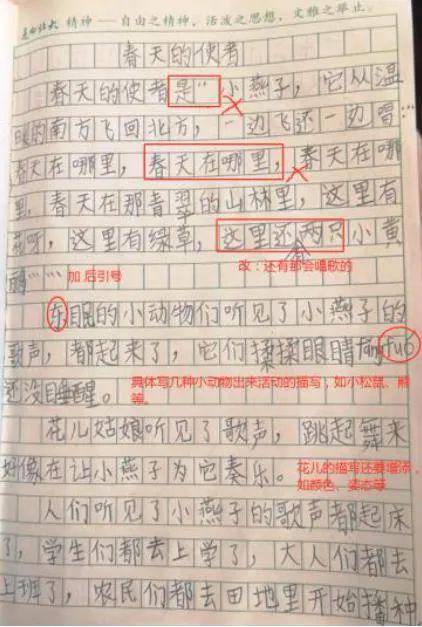 精神——自由之精神，活泼之思想，文雅之举止。
春天的使者
春天的使者是“小燕子，它从温
暖的南方飞回北方，一边飞还一边冒：“
春天在哪里，春天在哪里，春天在哪
里，春天在那青翠的山林里，这里有
花呀，这里有绿草，这里还两只小黄
鹂……
加后引号
改：还有那会唱歌的
东眠的小动物们听见了小燕子的
歌声，都起来了，它们揉揉眼睛fangfu6
还没睡醒。
具体写几种小动物出来活动的描写，如小松鼠、熊
等。
花儿姑娘听见了歌声，跳起舞来
好像在让小燕子为它奏乐。
花儿的描写还要增添，
如颜色、姿态等
人们听见了小燕子的歌声都起床
了，学生们都去上学了，大人们都去
上班了，农民们都去田地里开始播种，